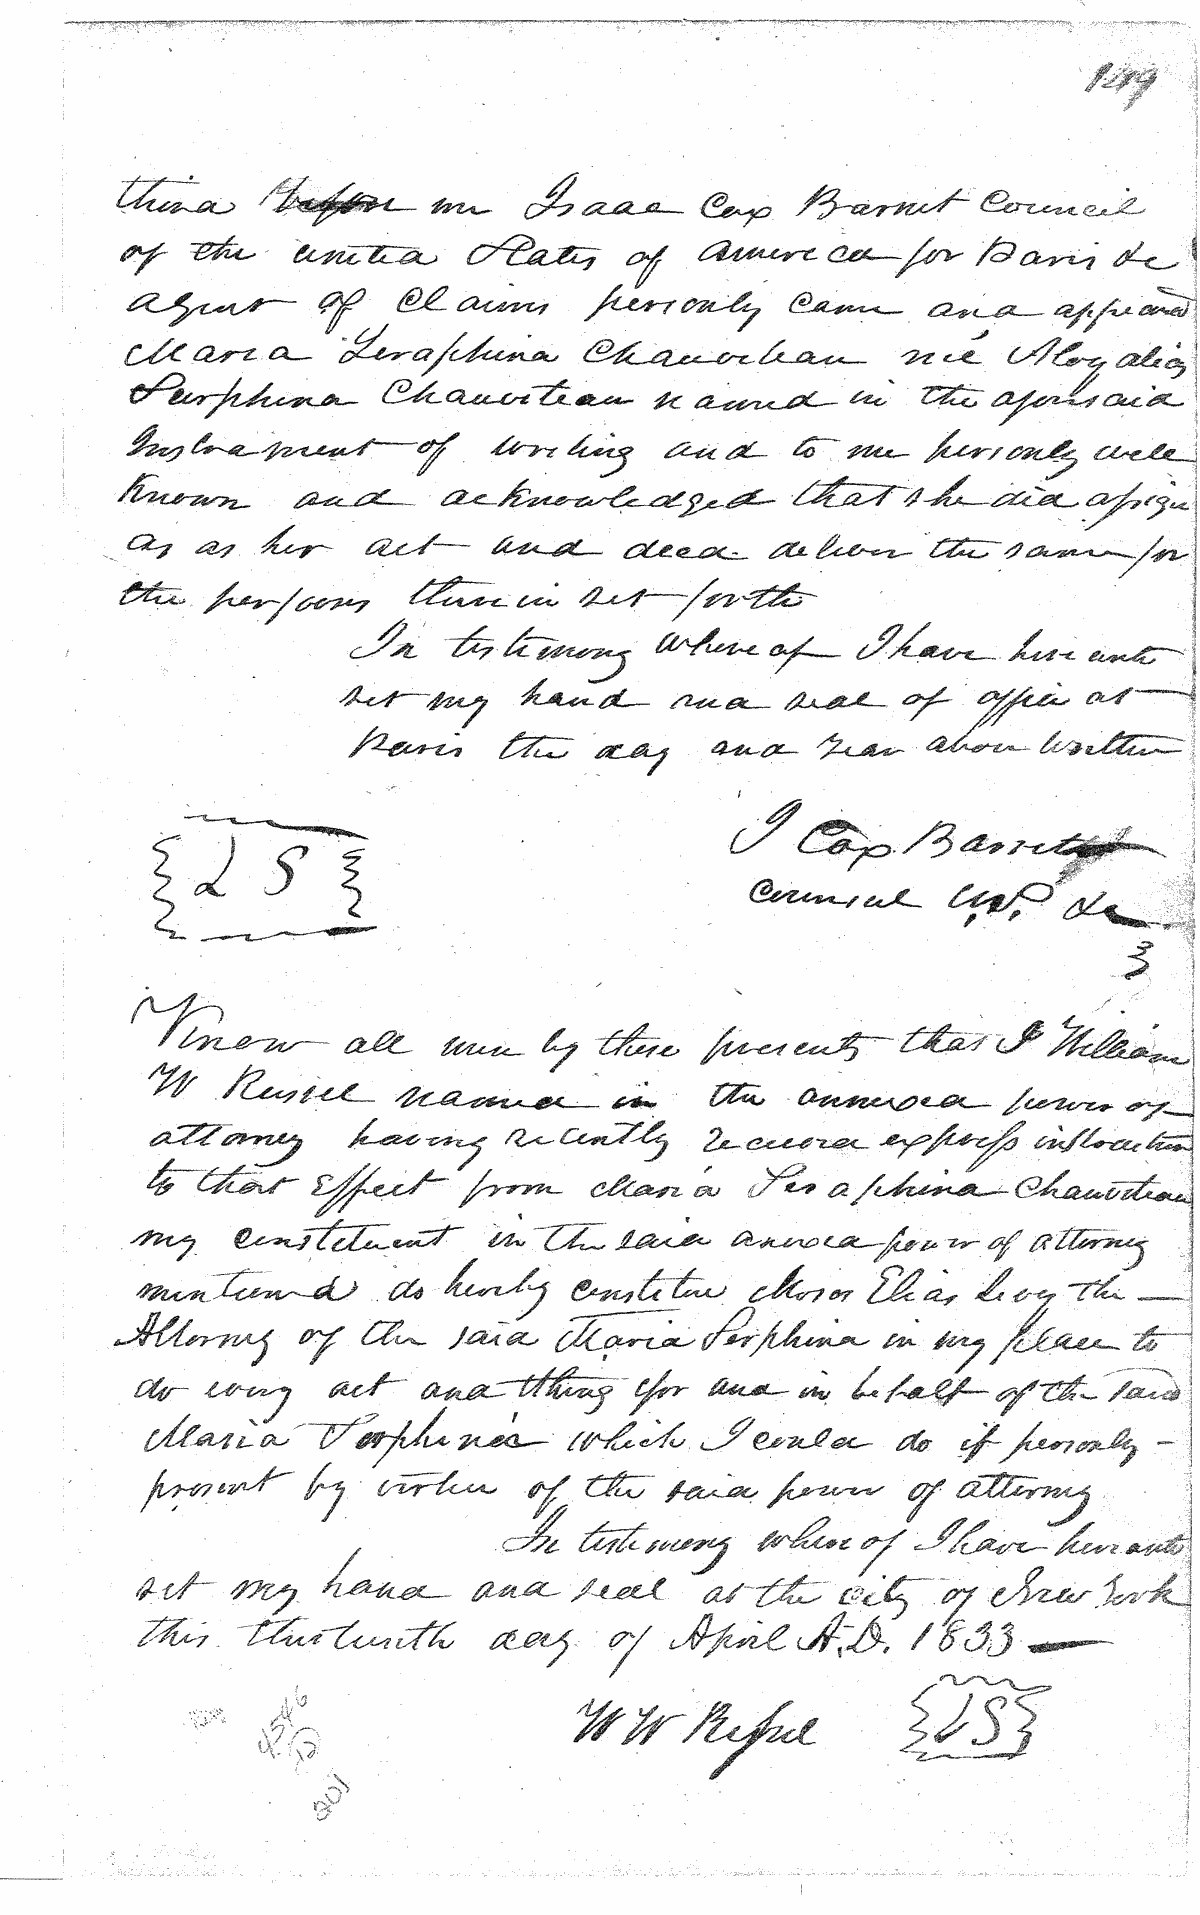 149
third before me Isaac Cox Barnet Council
of the united States of America for Paris &c
agent of Claims personly came and appeared
Maria Seraphina Chauviteau née Aloy alias
Serphina Chauviteau named in the aforesaid
Instrament of writing and to me personly well
Known and acknowledged that she did assign
as as her act and deed deliver the same for
the perposes therein set forth
In testimony whereof I have hereunto
set my hand and seal of office at
Paris the day and year above written
I Cox Barnet
Counsul U.S. &c
L S
Know all men by these presents that I William
W Russel named in the annexed power of
attorney having recently received express instruction
to that Effect from Maria Seraphina Chauviteau
my constetuent in the said annexed power of attorney
mentioned do hereby constitue Moses Elias Levy the
Attorney of the said Maria Serphina in my place to
do every act and thing for and in behalf of the said
Maria Serphina which I could do if personly
present by virtue of the said power of attorney
In testimony whereof I have hereunto
set my hand and seal at the city of New York
this thirteenth day of April A.D. 1833
W W Russel
L S
201